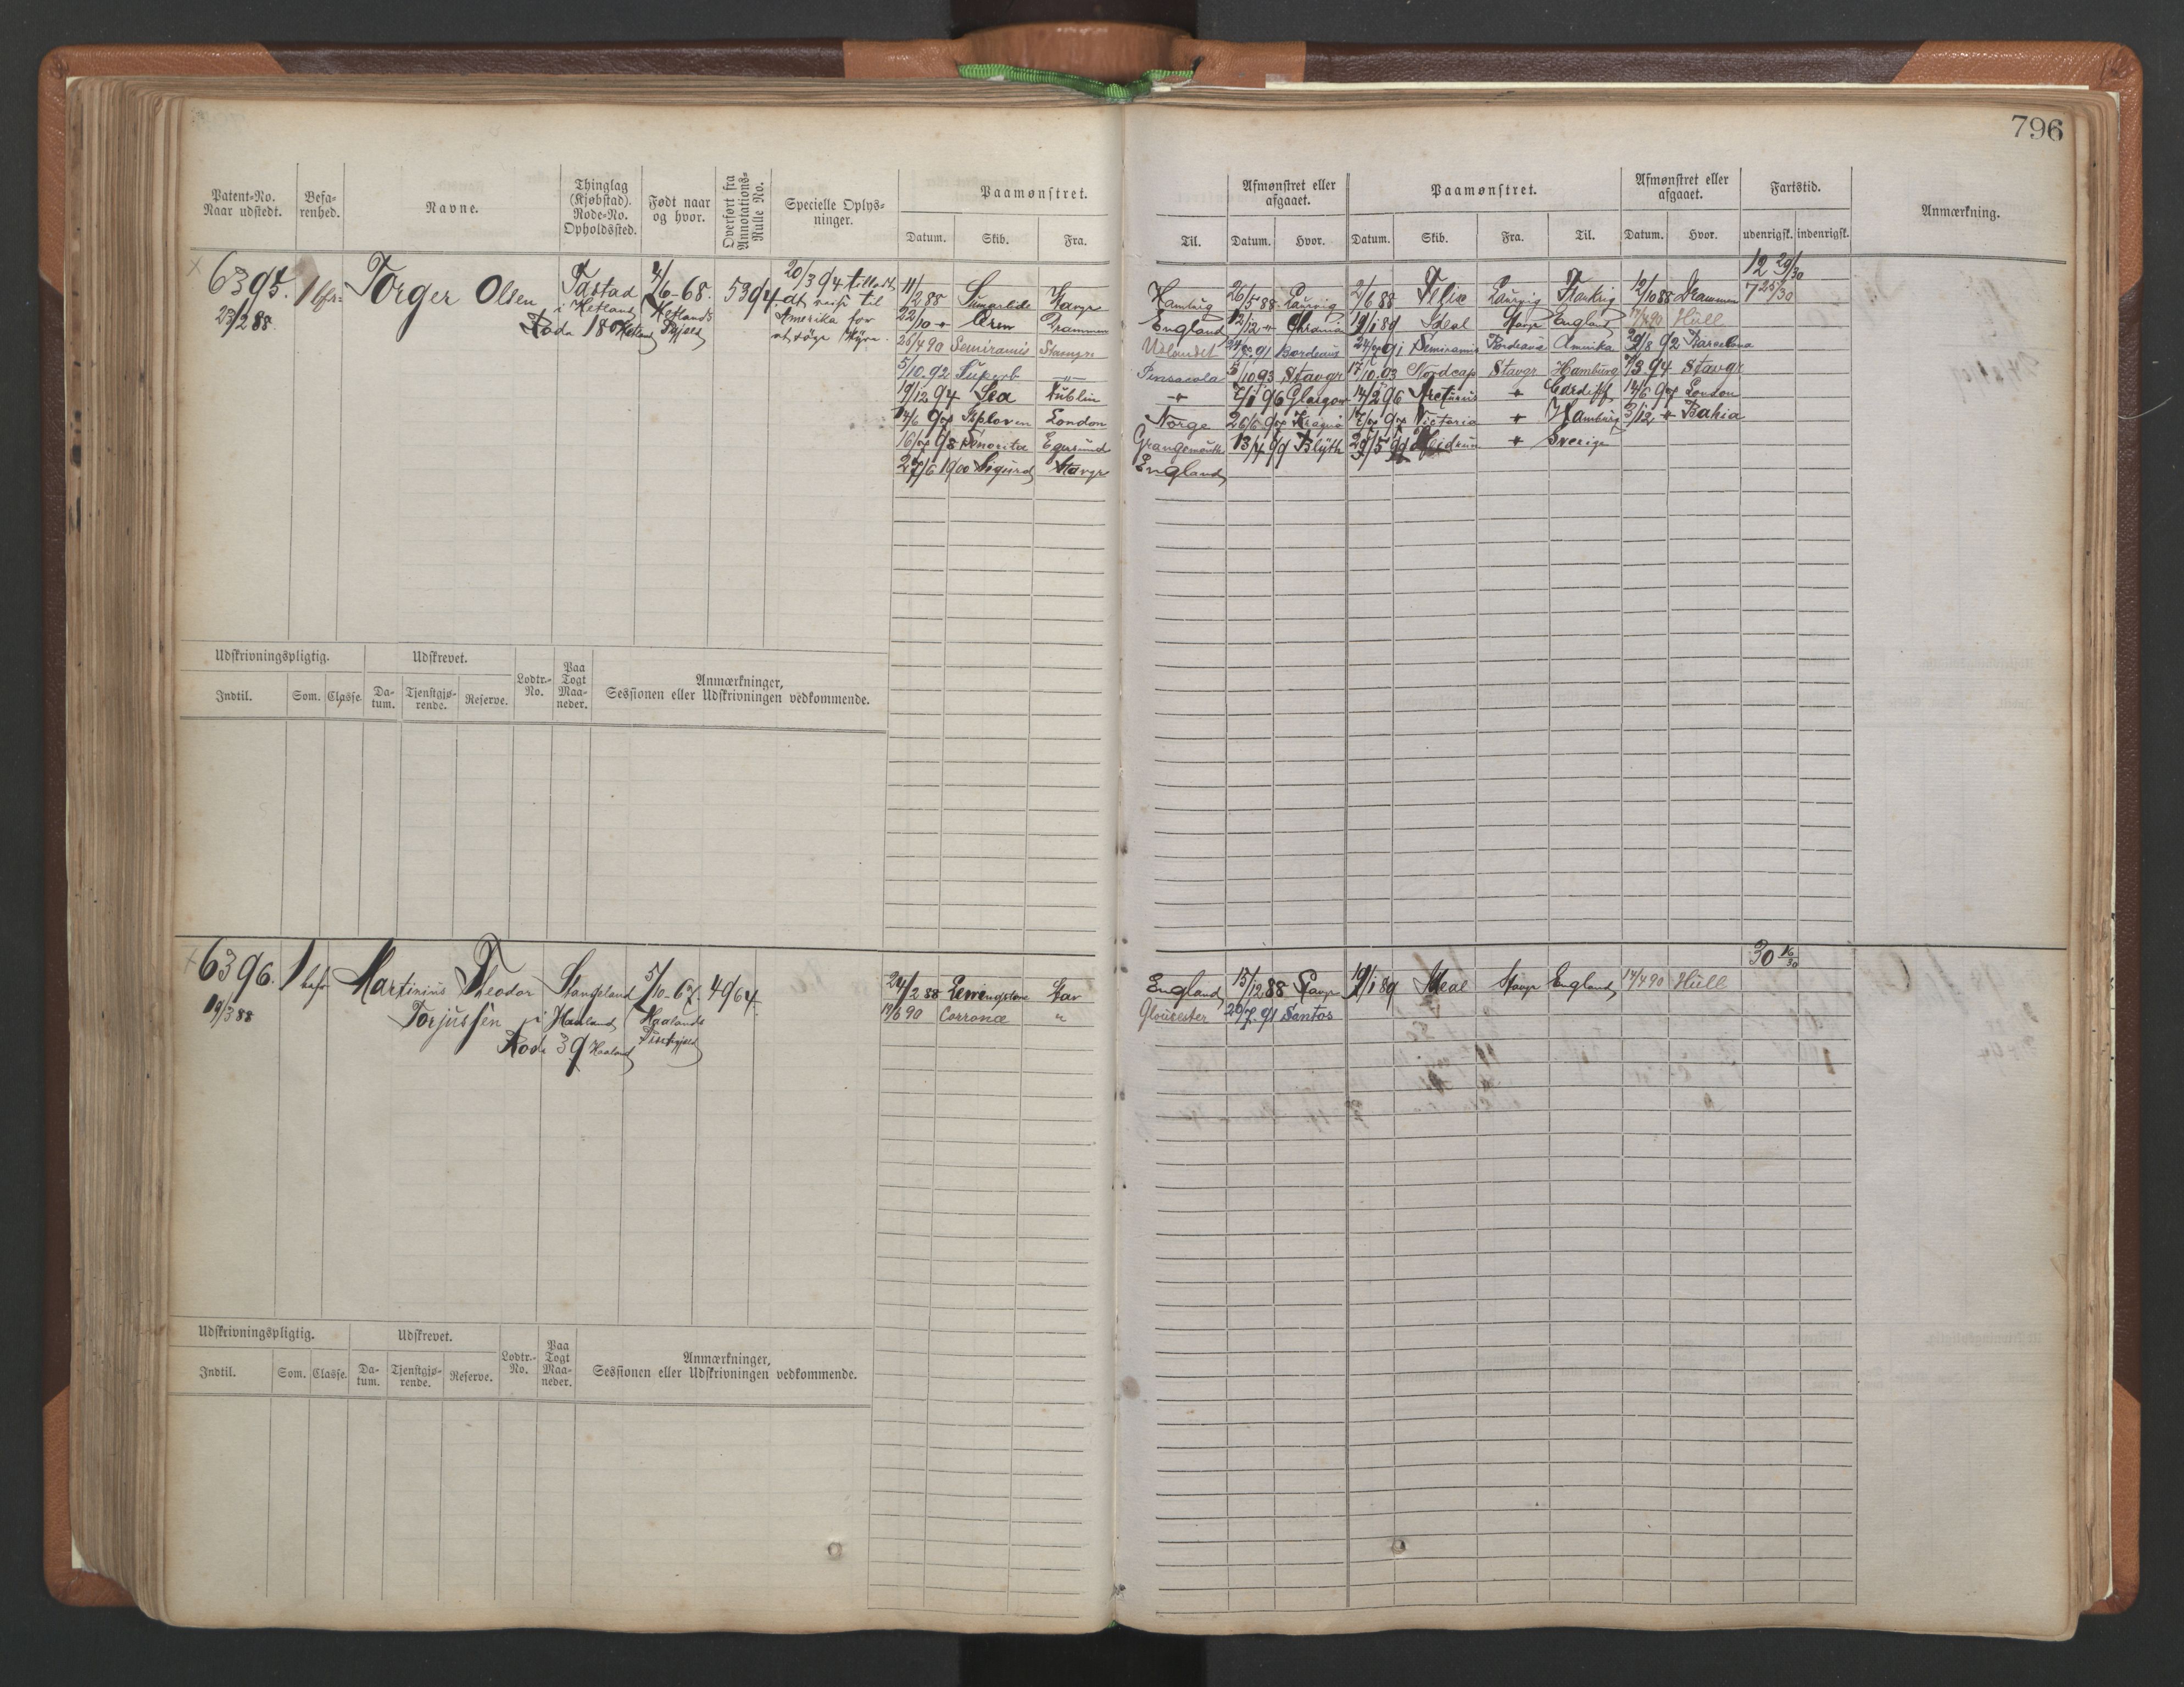 796
Patent-No. Naar udstedt. Befarenhed. Navne. Thinglag (Kjøbstad). Rode-No. Opholdssted. Født naar og hvor. Overført fra Annotations-Rulle No. Specielle Oplysninger. Paamønstret. Afmønstret eller afgaaet. Paamønstret. Afmønstret eller afgaaet. Fartstid. Anmærkning.
Datum. Skib. Fra. Til. Datum. Hvor. Datum. Skib. Fra. Til. Datum. Hvor. udenrigsk. indenrigsk.
12 29/30
6395. 1 Torger Olsen Tastad 4/6-68. 5394. 20/3 94 tilladt
23/2 88 i Hetland Hetlands
Rode 18 Hetland Prgjeld
at reise til
Amerika for
at søge Hyre.
11/2 88 Stavgr Hamburg 26/5 88 Laurvig 2/6 88 Felix Laurvig 12/10 88 Drammen 7 25/30
22/10 " Drammen England 12/12 " Chrania 19/1 89 Ideal Stavgr England 17/4 90 Hull
25/4 90 Semiramis Stavngr Udlandet 91 Bordeaux 91 Semiramis Bordeaux Amerika 29/8 92 Barcelona
5/10. 92 Superb " Pensacola 5/10 93 Stavgr 17/10. 93 Nordcap Stavgr Hamburg 7/3. 94 Stavgr
19/12 94 Lea Dublin " 7/1 96 Glasgow 14/2 96 Arcturus " Cardiff 14/6 97 London
14/6 97 London Norge 26/6 97 7/7 97 Victoria " Hamburg 3/12 " Bahia
16/7 98 Senorita Egersund Grangemouth 13/4 99 Blyth 29/5 99 Heidrun " Sverige
27/6 1900 Sigurd Stavgr England
Udskrivningspligtig. Udskrevet. Lodtr.-No. Paa Togt Maaneder. Anmærkninger, Sessionen eller Udskrivningen vedkommende.
Indtil. Som. Classe. Datum. Tjenstgjørende. Reserve.
30 16/30
6396. 1 befr Martinius Theodor Stangeland 5/10-67. 4964. 24/2 88 Stav England 15/12 88 Stavgr 19/1 89 Ideal Stavgr England 17/4 90 Hull
19/3 88 Torjussen i Haaland Haalands 17/6 90 Corrona " Gloucester 20/7. 91 Santos
Rode 39 Haaland Præstgjeld
Udskrivningspligtig. Udskrevet. Lodtr.-No. Paa Togt Maaneder. Anmærkninger, Sessionen eller Udskrivningen vedkommende.
Indtil. Som. Classe. Datum. Tjenstgjørende. Reserve.